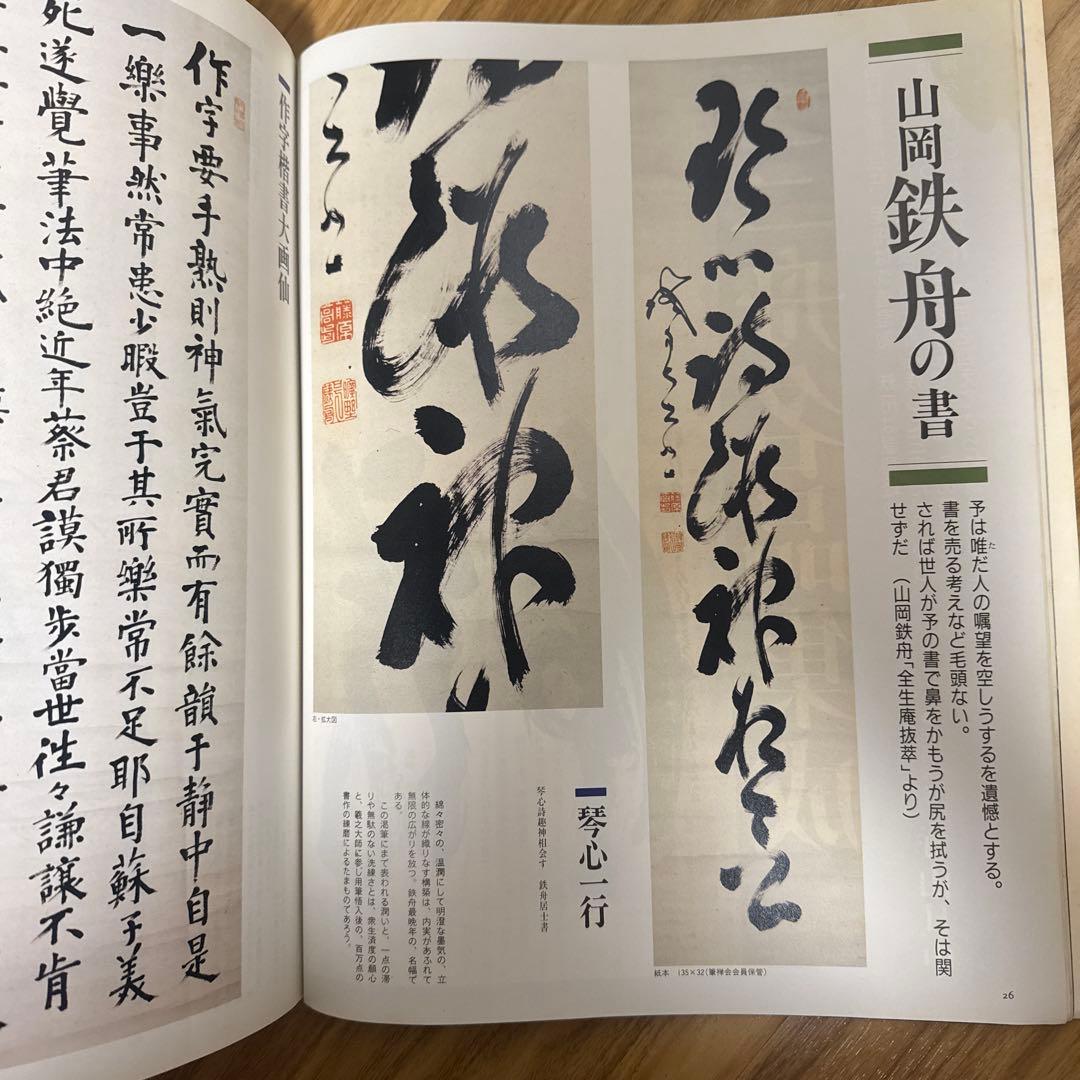 山岡鉄舟の書
予は唯だ人の嘱望を空しうするを遺憾とする。
書を売る考えなど毛頭ない。
されば世人が予の書で鼻をかもうが尻を拭うが、そは関
せずだ（山岡鉄舟「全生庵抜萃」より）
琴心詩趣神相会
紙本 135×32（筆禅会会員保管）
琴心一行
琴心詩趣神相会す 鉄舟居士書
綿々密々の、温潤にして明澄な墨気の、立
体的な線が織りなす構築は、内実があふれて
無限の広がりを放つ。鉄舟最晩年の、名幅で
ある。
この渇筆にまで表われる潤いと、一点の滞
りや無駄のない洗練さとは、衆生済度の願心
と、羲之大師に参じ用筆悟入後の、百万点の
書作の錬磨によるたまものであろう。
右・拡大図
26
作字楷書大画仙
作字要手熟則神氣完實而有餘韻于静中自是
一樂事然常患少暇豈于其所樂常不足耶自蘇子美
死遂覺筆法中絶近年蔡君謨獨歩當世往々謙讓不肯